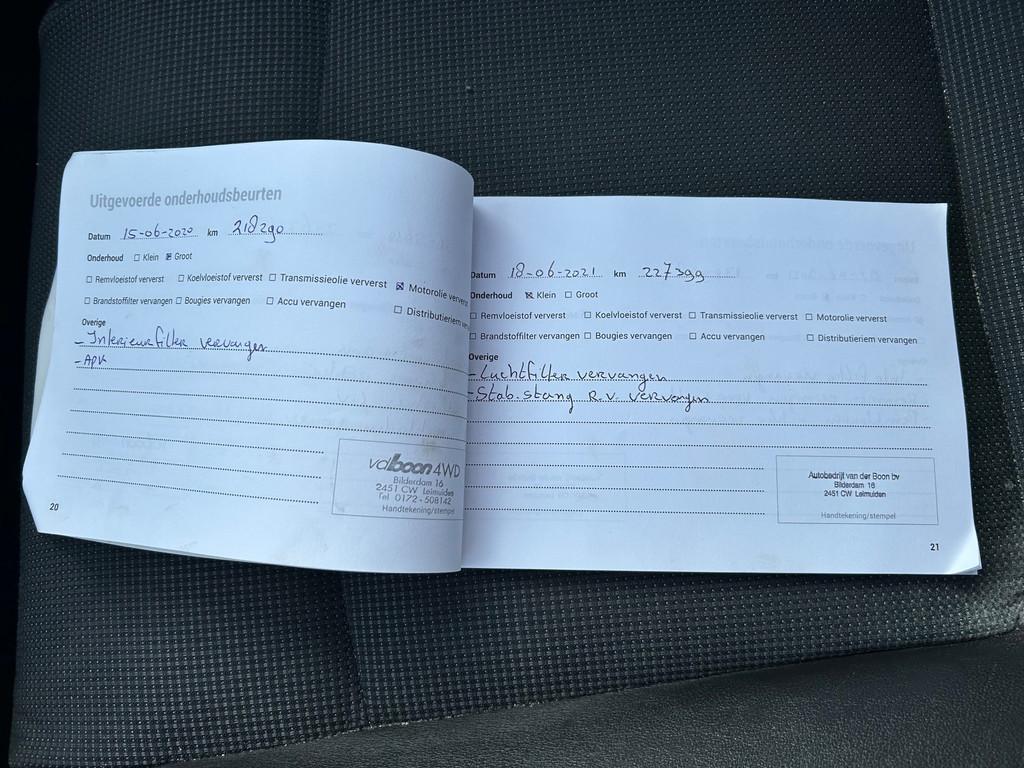 Uitgevoerde onderhoudsbeurten
Datum 15-06-2020 km 218290
Onderhoud ☐ Klein ☒ Groot
☐ Remvloeistof ververst ☐ Koelvloeistof ververst ☐ Transmissieolie ververst ☒ Motorolie ververs
☐ Brandstoffilter vervangen ☐ Bougies vervangen ☐ Accu vervangen ☐ Distributieriem ver
Overige
- Interieurfilter vervangen
- APK
valboon 4WD
Bilderdam 16
2451 CW Leimuiden
Tel 0172 - 508142
Handtekening/stempel
20
Datum 18-06-2021 km 227399
Onderhoud ☒ Klein ☐ Groot
☐ Remvloeistof ververst ☐ Koelvloeistof ververst ☐ Transmissieolie ververst ☐ Motorolie ververst
☐ Brandstoffilter vervangen ☐ Bougies vervangen ☐ Accu vervangen ☐ Distributieriem vervangen
Overige
- Luchtfilter vervangen
- Stab.stang R.V. vervangen
Autobedrijf van der Boon bv
Bilderdam 16
2451 CW Leimuiden
Handtekening/stempel
21